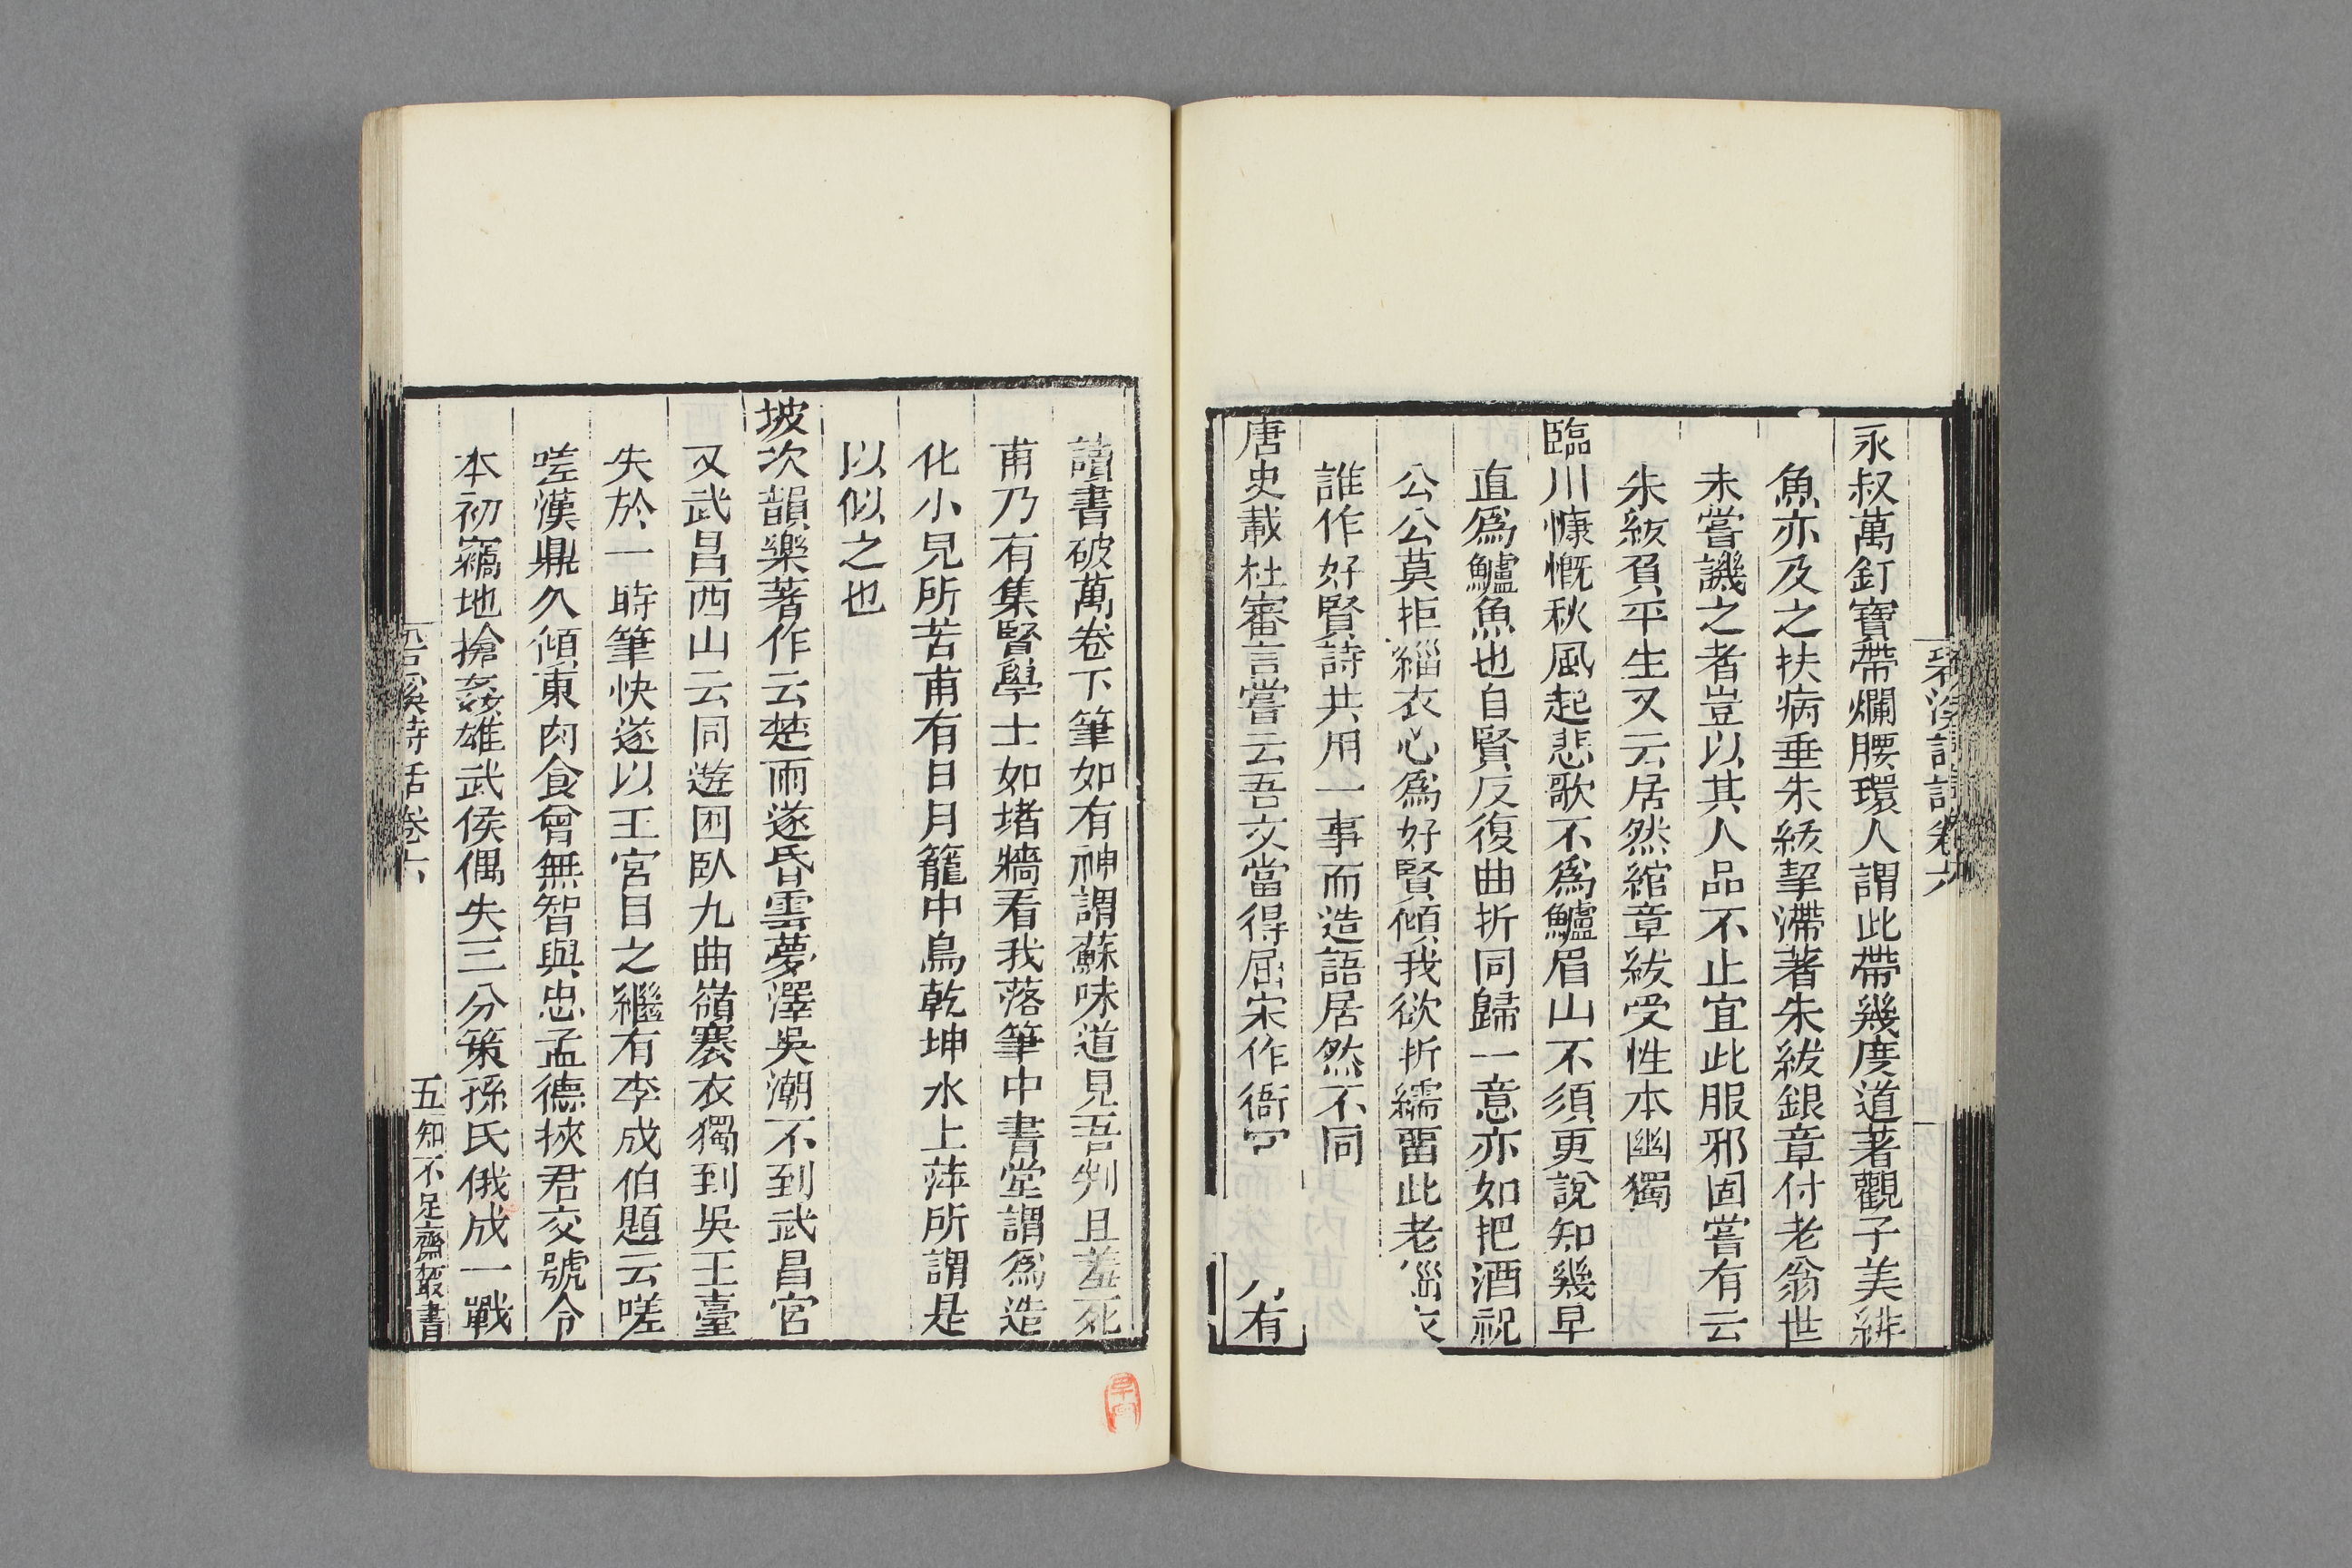 永叔萬釘寶帶爛腰環人謂此帶幾度道著觀子美緋
魚亦及之扶病垂朱紱挈滯著朱紱銀章付老翁世
未嘗譏之者豈以其人品不止宜此服邪固嘗有云
朱紱負平生又云居然綰章紱受性本幽獨
臨川慷慨秋風起悲歌不爲鱸眉山不須更說知幾早
直爲鱸魚也自賢反復曲折同歸一意亦如把酒祝
公公莫拒緇衣心爲好賢傾我欲折繻留此老緇衣
誰作好賢詩共用一事而造語居然不同
唐史載杜審言嘗云吾文當得屈宋作衙 有
讀書破萬卷下筆如有神謂蘇味道見吾判且羞死
甫乃有集賢學士如堵牆看我落筆中書堂謂爲造
化小兒所苦甫有日月籠中鳥乾坤水上萍所謂是
以似之也
坡次韻樂著作云楚雨遂昏雲夢澤吳潮不到武昌宮
又武昌西山云同遊困臥九曲嶺褰衣獨到吳王臺
失於一時筆快遂以王宮目之繼有李成伯題云嗟
嗟漢鼎久傾東肉食曾無智與忠孟德挾君交號令
本初竊地搶姦雄武侯偶失三分策孫氏俄成一戰
溪詩話卷六
五
知不足齋叢書